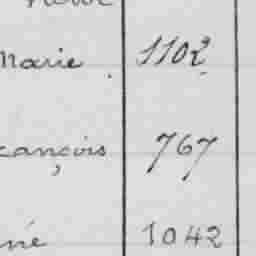 Marie 1102
ançois 767
né 1042